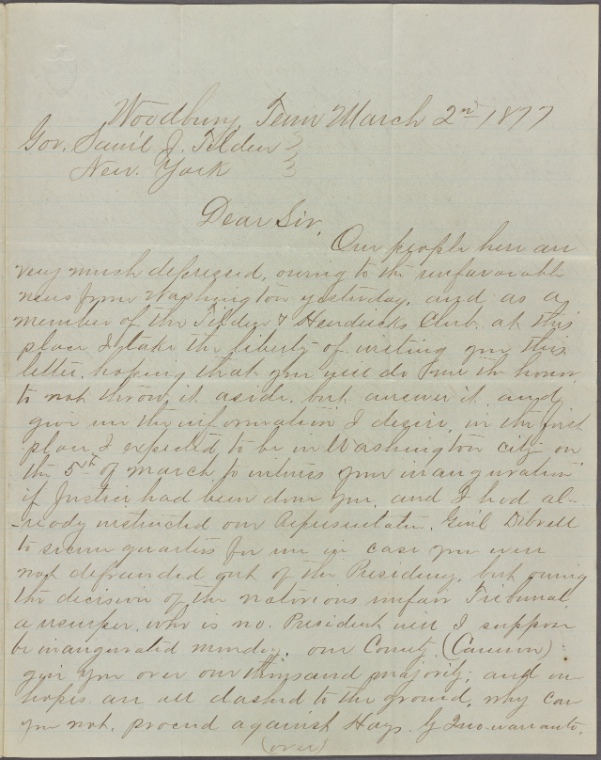 Woodbury, Tenn March 2nd 1877
Gov. Sam'l J. Tilden
New. York
Dear Sir,
Our people here are
very much depressed, owing to the unfavorable
news from Washington yesterday, and as a
member of the Tilden & Hendricks Club, at this
place I take the liberty of writing you this
letter, hoping that you will do me the honor
to not throw it aside, but answer it, and
give me the information I desire, in the first
place I expected to be in Washington city on
the 5th of March to witness your inauguration
if Justice had been done you, and I had al-
-ready instructed our Representative, Genl Dibrell
to secure quarters for me in case you were
not defrauded out of the Presidency, but owing
the decision of the notorious unfair Tribunal
a usurper, who is no. President will I suppose
be inaugurated monday, our County (Cannon)
give you over one thousand majority, and our
hopes are all dashed to the ground, why can
you not, proceed against Hays. by Quo-warranto,
(over)